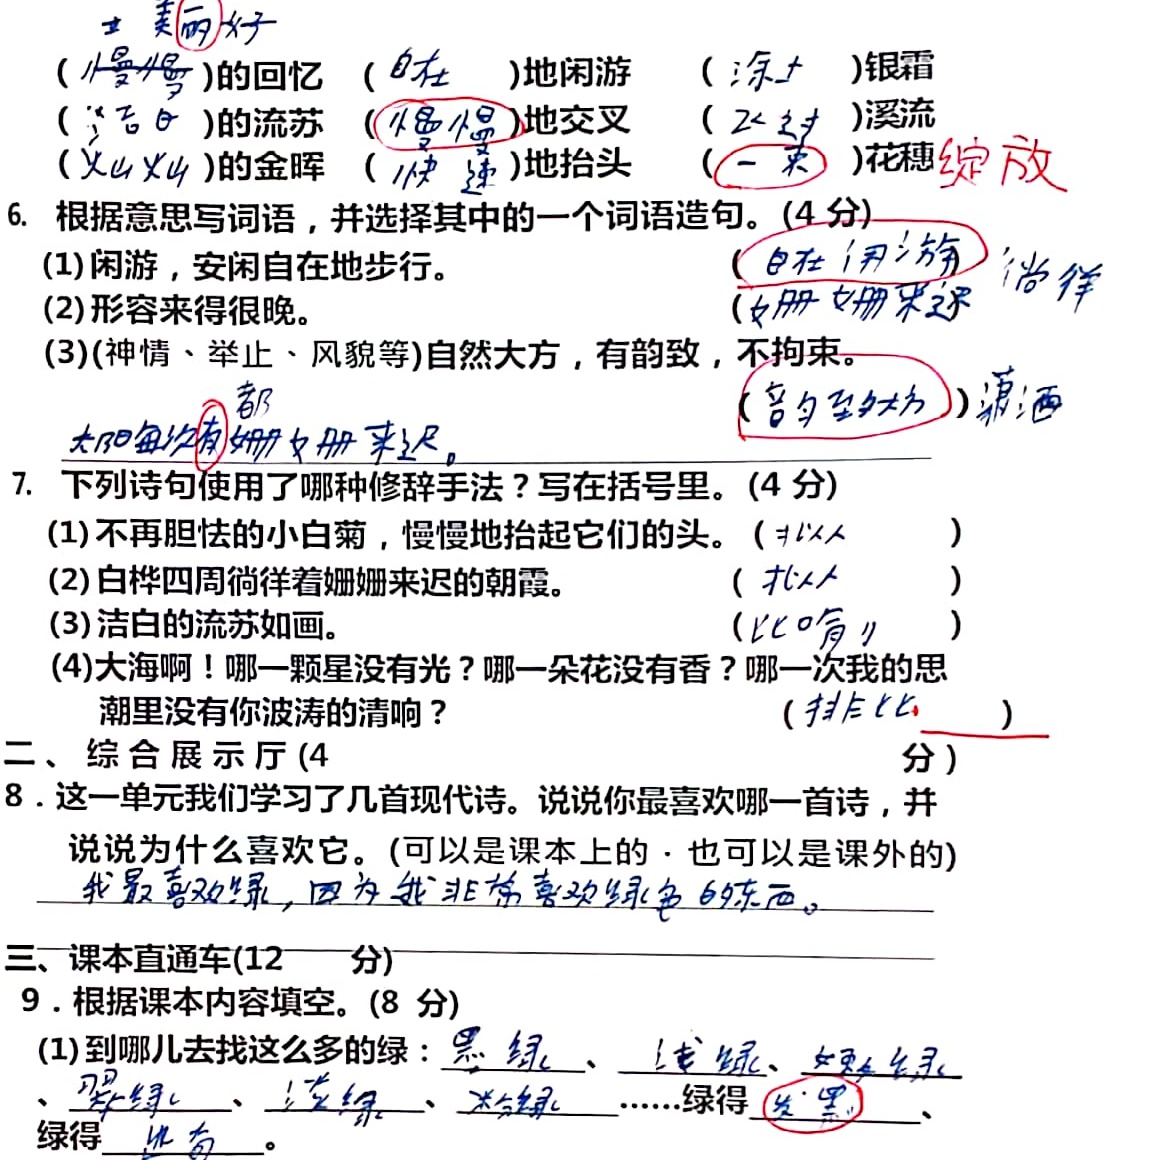 美丽好
(慢慢)的回忆 (自在 )地闲游 (涂上 )银霜
(洁白 )的流苏 (慢慢)地交叉 (飞过 )溪流
(灿灿)的金晖 (快速)地抬头 (一束 )花穗 绽放
6. 根据意思写词语，并选择其中的一个词语造句。(4 分)
(1)闲游，安闲自在地步行。 (自在闲游) 徜徉
(2)形容来得很晚。 (姗姗来迟
(3)(神情、举止、风貌等)自然大方，有韵致，不拘束。
都 (大方) 潇洒
太阳每次有姗姗来迟。
7. 下列诗句使用了哪种修辞手法？写在括号里。(4 分)
(1)不再胆怯的小白菊，慢慢地抬起它们的头。(拟人 )
(2)白桦四周徜徉着姗姗来迟的朝霞。 (拟人 )
(3)洁白的流苏如画。 (比喻 )
(4)大海啊！哪一颗星没有光？哪一朵花没有香？哪一次我的思
潮里没有你波涛的清响？ (排比 )
二、综合展示厅(4 分)
8．这一单元我们学习了几首现代诗。说说你最喜欢哪一首诗，并
说说为什么喜欢它。(可以是课本上的·也可以是课外的)
我最喜欢绿，因为我非常喜欢绿色的东西。
三、课本直通车(12 分)
9．根据课本内容填空。(8 分)
(1)到哪儿去找这么多的绿：墨绿、浅绿、嫩绿
、翠绿、淡绿、粉绿……绿得发黑、
绿得出奇。